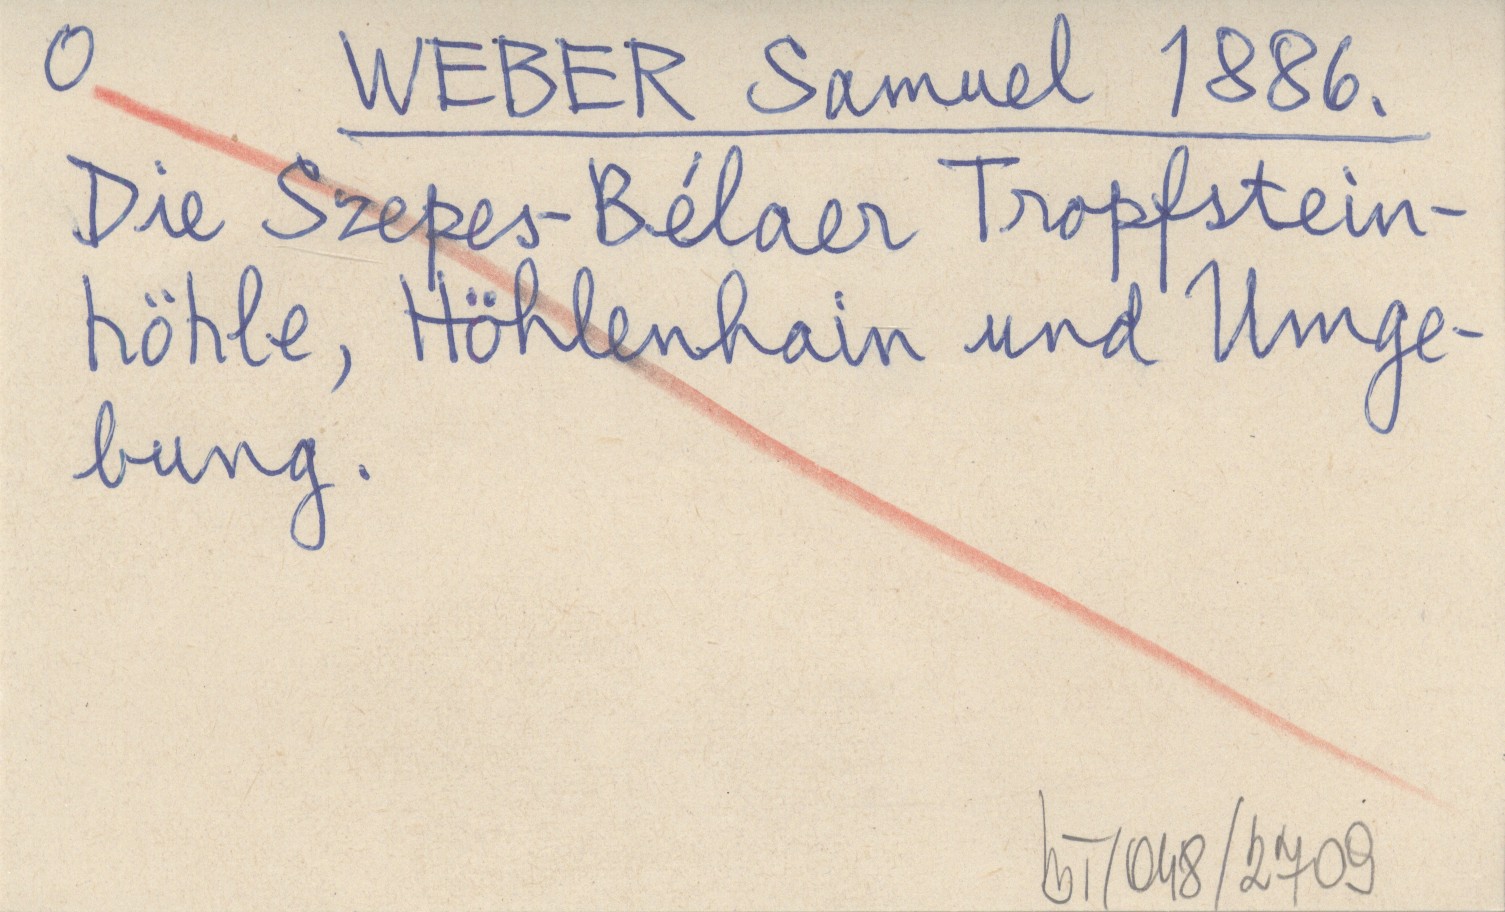 O WEBER Samuel 1886.
Die Szepes-Bélaer Tropfstein-
höhle, Höhlenhain und Umge-
bung.
bT/048/2709